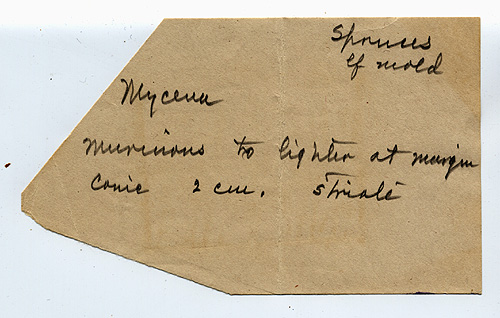 Spruces
lf mold
Mycena
murinous to lighter at margin
conic 2 cm. striate